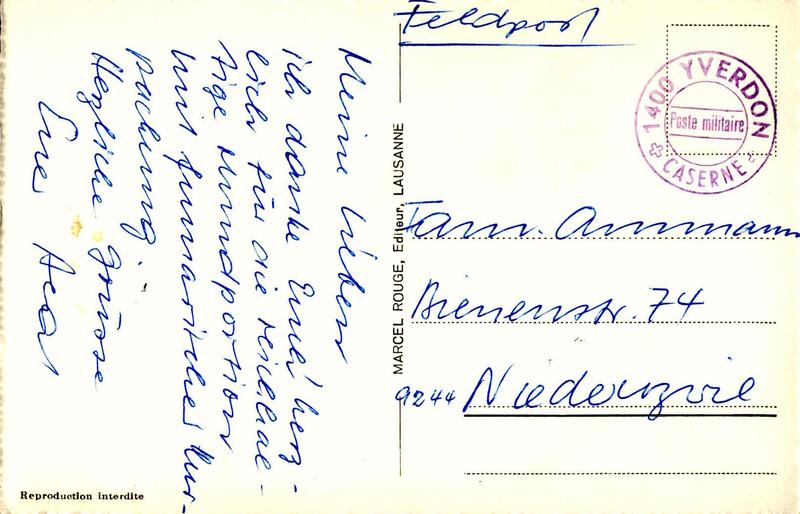 Meine Lieben
Ich danke Euch herz-
lich für die reichhal-
tige Mundportion
mit
packung.
Herzliche Grüsse
Euer
Reproduction interdite
MARCEL ROUGE, Editeur, LAUSANNE
Feldpost
1400 YVERDON
Poste militaire
CASERNE 2
Fam. Ammann
Bienenstr. 74
9244 Niederuzwil